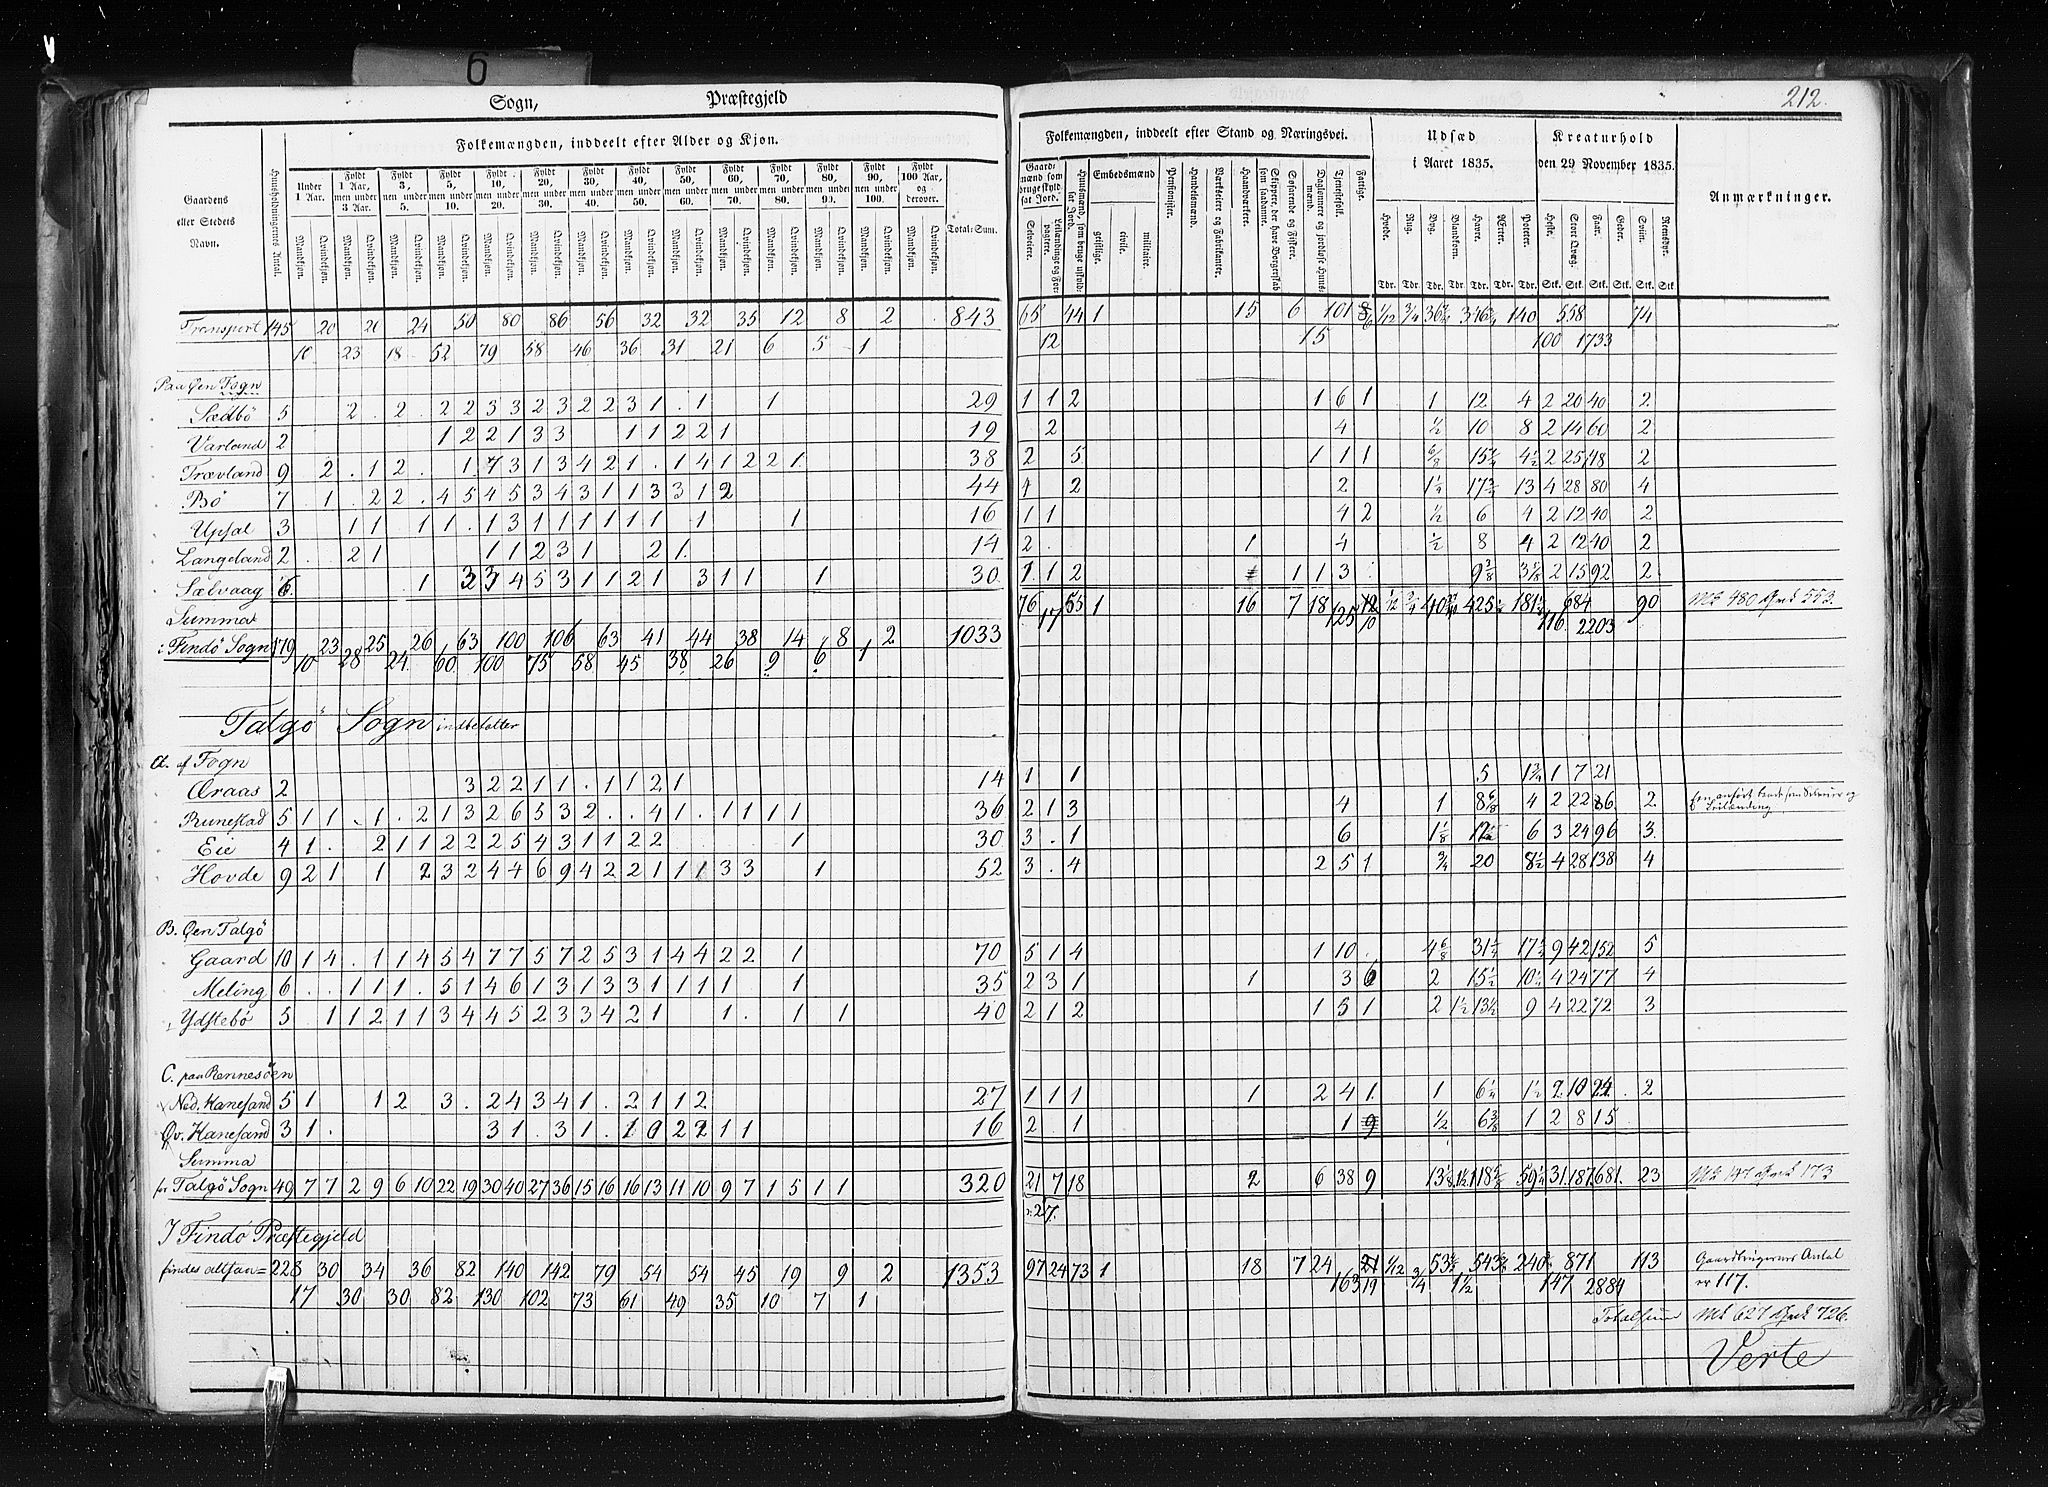 6
Sogn, Præstegjeld
212.
Gaardens eller Stedets Navn.
Huusholdningernes Antal.
Folkemængden, inddeelt efter Alder og Kjøn.
Under 1 Aar.
Fyldt 1 Aar, men under 3 Aar.
Fyldt 3, men under 5.
Fyldt 5, men under 10.
Fyldt 10, men under 20.
Fyldt 20, men under 30.
Fyldt 30, men under 40.
Fyldt 40, men under 50.
Fyldt 50, men under 60.
Fyldt 60, men under 70.
Fyldt 70, men under 80.
Fyldt 80, men under 90.
Fyldt 90, men under 100.
Fyldt 100 Aar, og derover.
Mandkjøn. Qvindekjøn.
Total-Sum.
Folkemængden, inddeelt efter Stand og Næringsvei.
Gaardmænd som bruge skyldsat Jord.
Selveiere.
Leilændinge og Forpagtere.
Huusmænd, som bruge uskyldsat Jord.
Embedsmænd
geistlige.
civile.
militaire.
Pensionister.
Handelsmænd.
Værkseiere og Fabrikanter.
Haandværkere.
Skippere, der have Borgerskab som saadanne.
Søfarende og Fiskere.
Daglønnere og jordløse Huusmænd.
Tjenestefolk.
Fattige.
Udsæd i Aaret 1835.
Hvede. Rug. Byg. Blandkorn. Havre. Erter. Poteter.
Tdr. Tdr. Tdr. Tdr. Tdr. Tdr. Tdr.
Kreaturhold den 29 November 1835.
Heste. Stort Qvæg. Faar. Geder. Sviin. Rensdyr.
Stk. Stk. Stk. Stk. Stk. Stk.
Anmærkninger.
Transport 145 20 20 24 50 80 86 56 32 32 35 12 8 2 843 65 44 1 15 6 101 1/12 3/4 140 558 74
10 23 18 52 79 58 46 36 31 21 6 5 1 12 15 100 1733
Paa Øen Fogn
Sædbö 5 2 . 2 . 2 2 3 3 2 3 2 2 3 1 . 1 1 29 1 1 2 1 6 1 1 12 4 2 20 40 2
Varland 2 1 2 2 1 3 3 1 1 2 2 1 19 2 4 1/2 10 8 2 14 60 2
Trævland 9 2 . 1 2 . 1 7 3 1 3 4 2 1 . 1 4 1 2 2 1 38 2 5 1 1 1 6/8 4 1/2 2 25 48 2
Bö 7 . 1 . 2 2 . 4 5 4 5 3 4 3 1 1 3 3 1 2 44 4 2 2 1 1/4 13 4 28 80 4
Upsal 3 1 1 1 1 . 1 3 1 1 1 1 1 1 1 1 16 1 1 4 2 1/2 6 4 2 12 40 2
Langeland 2 . 2 1 1 1 2 3 1 2 1 14 2 . 1 4 1/2 8 4 2 12 40 2
Sælvaag 6 1 3 4 5 3 1 1 2 1 3 1 1 1 30 1 1 2 1 1 3 9 3/8 2 15 92 2
Summa 76 17 55 1 16 7 18 125 10 684 90 Mk 480 Qvk 553.
: Findö Sogn 179 23 25 26 63 100 106 63 41 44 38 14 8 2 1033 116 2203
10 28 24 60 100 75 58 45 38 26 9 6 1
Talgö Sogn indbefatter
a. af Fogn
Øraas 2 3 2 2 1 1 . 1 1 2 1 14 1 1 5 1 3/4 1 7 21
Runestad 5 1 1 . 1 . 2 1 3 2 6 5 3 2 . . 4 1 . 1 1 1 1 36 2 1 3 4 1 8 6/8 4 2 22 86 2
Eie 4 1 . 2 1 1 2 2 2 5 4 3 1 1 2 2 1 30 3 . 1 6 1 1/8 6 3 24 96 3.
Hovde 9 2 1 1 2 3 2 4 4 6 9 4 2 2 1 1 1 3 3 1 52 3 . 4 2 5 1 3/4 20 8 1/2 4 28 138 4
B. Øen Talgö
Gaard 10 1 4 . 1 1 4 5 4 7 7 5 7 2 5 3 1 4 4 2 2 1 70 5 1 4 1 10 4 6/8 9 42 152 5
Meling 6 . . 1 1 1 . 5 1 4 6 1 3 1 3 3 1 1 1 1 1 35 2 3 1 1 3 6 2 15 1/2 4 24 77 4
Ydstebö 5 1 1 2 1 1 3 4 4 5 2 3 3 4 2 1 1 . 1 1 40 2 1 2 1 5 1 2 1 1/2 13 1/2 9 4 22 72 3
C. paa Rennesöen
Ned. Hanesand 5 1 1 2 3 . 2 4 3 4 1 . 2 1 1 2 27 1 1 1 1 2 4 1 1 6 1/4 1 1/2 2 10 24 2
Øv. Hanesand 3 1 . 3 1 . 3 1 1 1 16 2 . 1 1 1/2 6 3/8 1 2 8 15
Summa
for Talgö Sogn 49 7 7 2 9 6 10 22 19 30 40 27 36 15 16 16 13 11 10 9 7 1 5 1 1 320 21 7 18 2 6 38 9 13 1/8 1 1/2 59 1/4 31 187 681 23 Mk 147 Qvk 173
27.
I Findö Præstegjeld
findes altsaa = 228 30 34 36 82 140 142 79 54 54 45 19 9 2 1353 97 24 73 1 18 7 24 163 19 1/12 3/4 1 1/2 871 113 Gaardbrugernes Antal
17 30 30 82 130 102 73 61 49 35 10 7 1 147 2884 er 117.
Totalsum Mk 627 Qvk 726.
Verte